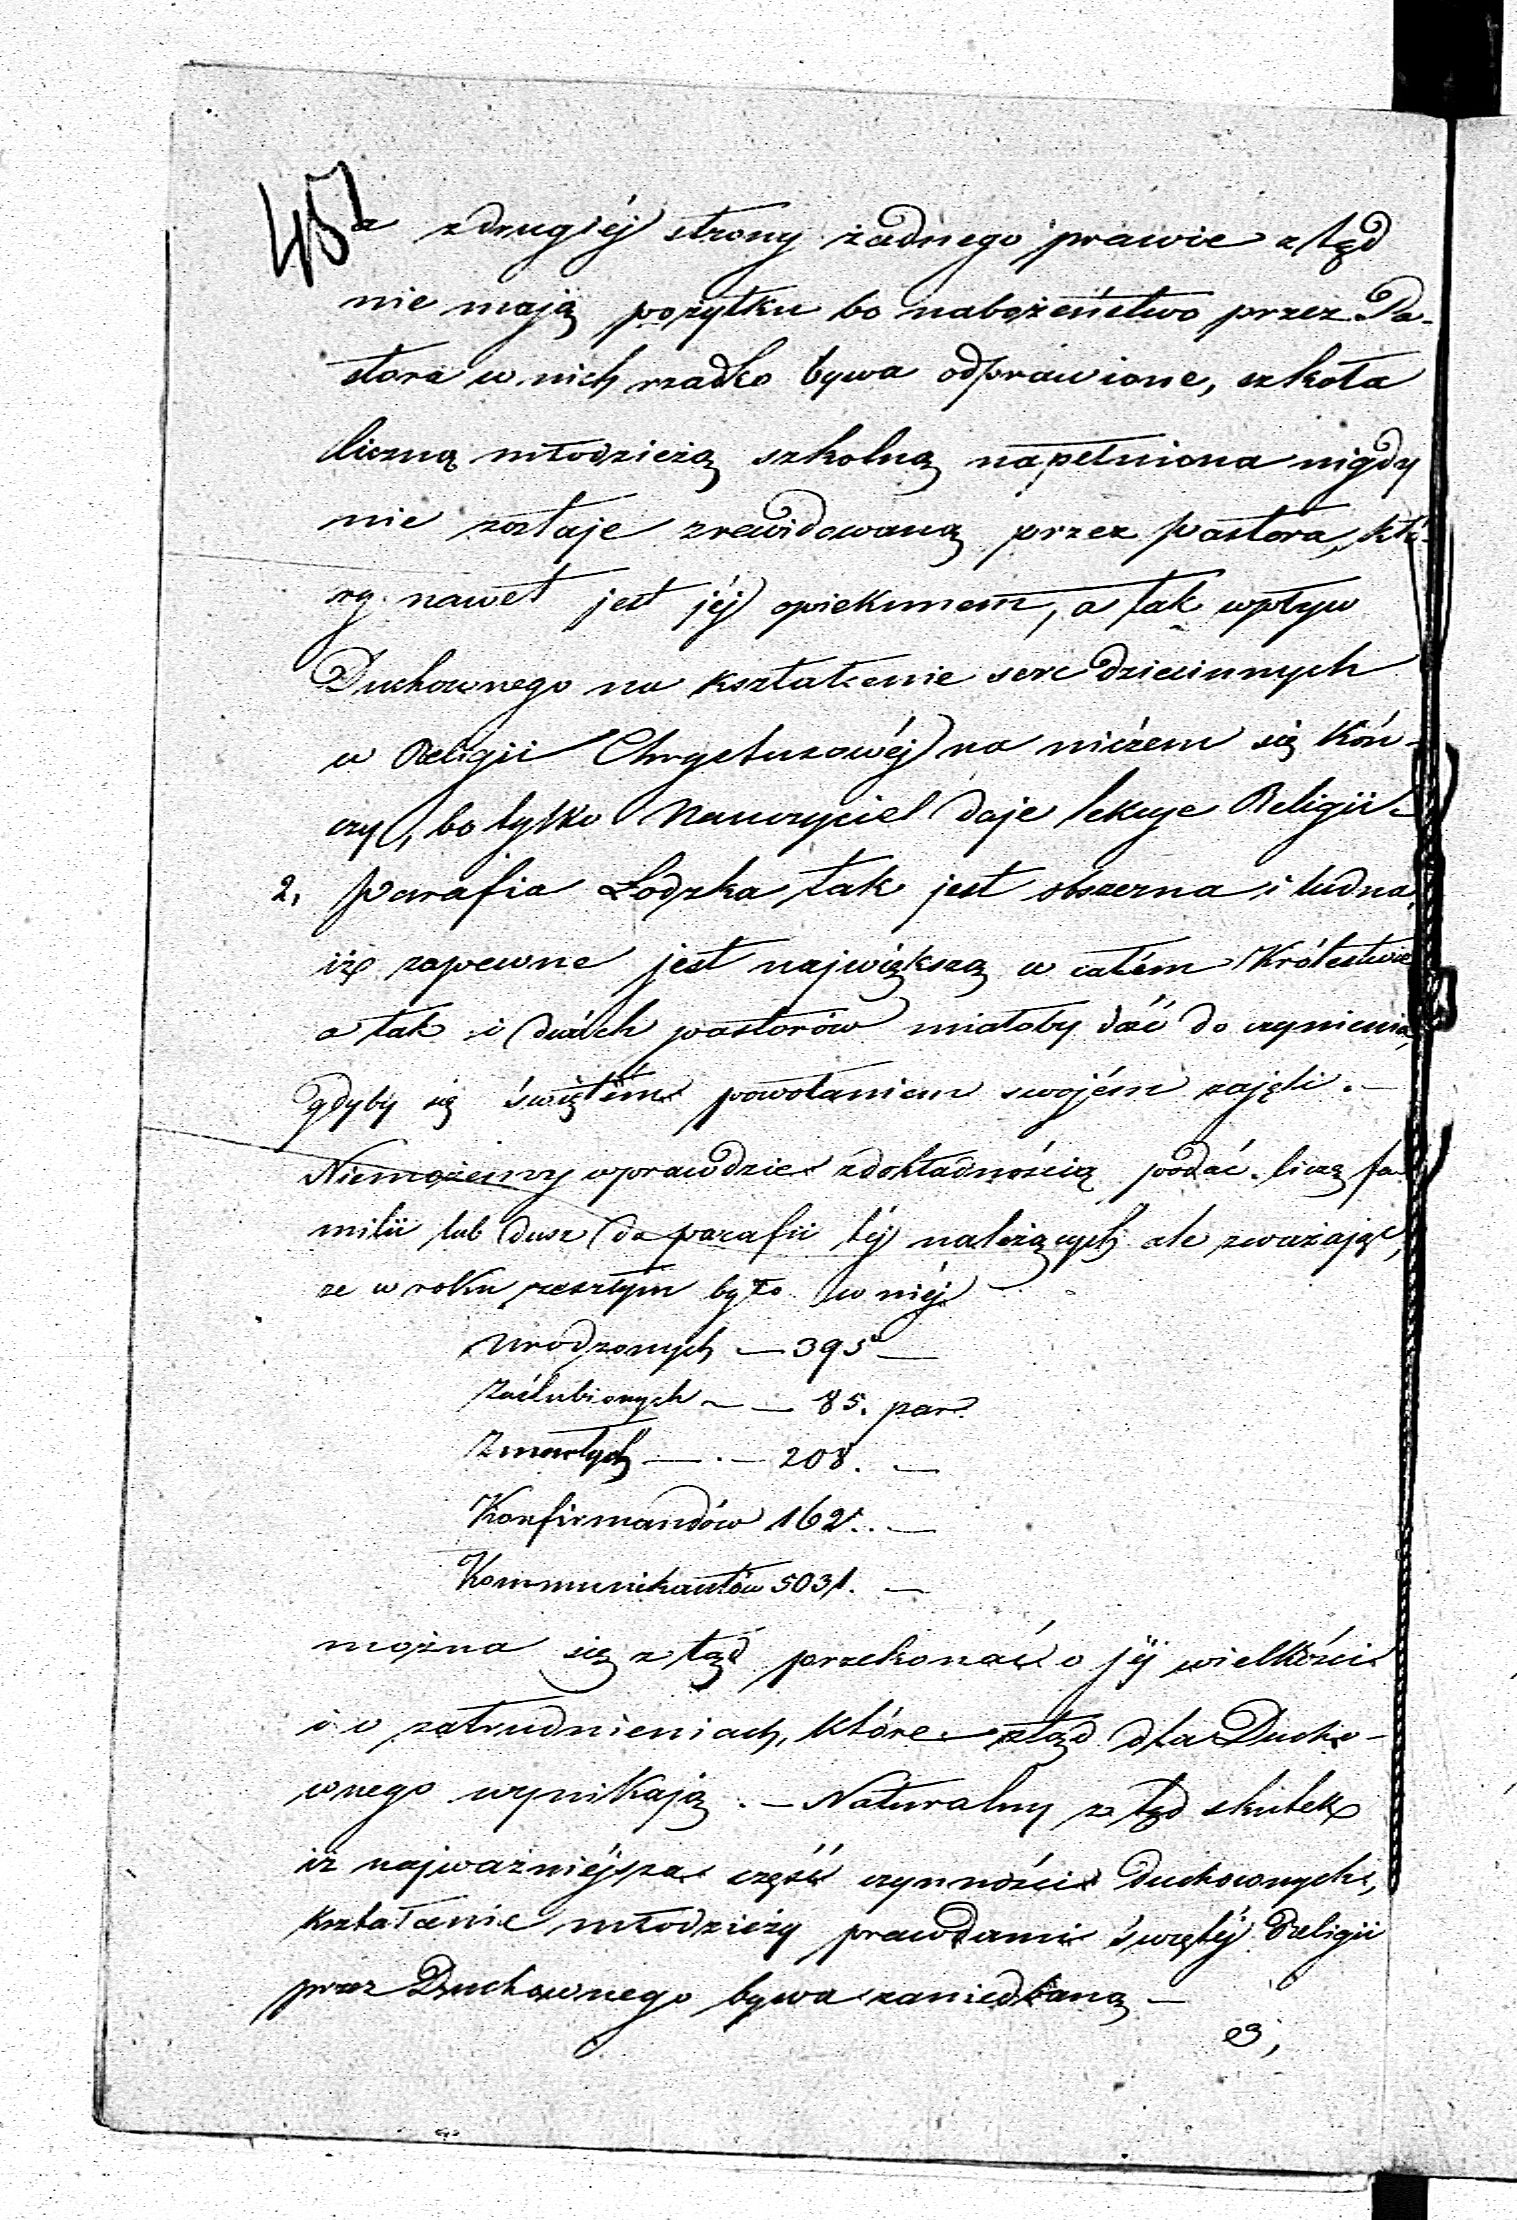 45
a z drugiéj strony żadnego prawie ztąd
nie mają pożytku bo nabożeństwo przez Pa-
stora w nich rzadko bywa odprawione, szkoła
liczną młodzieżą szkolną napełniona nigdy
nie zostaje zrewidowaną przez Pastora, któ-
ry nawet jest jéj opiekunem, a tak wpływ
Duchownego na kształcenie serc dziecinnych
w Religii Chrystusowéj na niczem się koń-
czy, bo tylko Nauczyciel daje lekcye Religii –
2, Parafia Łódzka tak jest obszerna i ludna,
iż zapewne jest największą w całém Królestwie
a tak i dwóch pastorów miałoby dość do czynienia,
gdyby się świętém powołaniem swojém zajęli. –
Niemożemy wprawdzie z dokładnością podać liczę fa-
milii lub dusz do parafii téj należących ale zważając,
że w roku zeszłym było w niéj
Urodzonych – 395 –
Zaślubionych – – 85. par
Zmarłych – . – 208. –
Konfirmandów 162. –
Kommunikantów 5031. –
można się ztąd przekonać o jéj wielkości
i o zatrudnieniach, które ztąd dla Ducho-
wnego wynikają. – Naturalny ztąd skutek
iż najważniéjsza część czynności Duchownych,
kształcenie młodzieży prawdami świętéj Religii
przez Duchownego bywa zaniedbaną –
3,